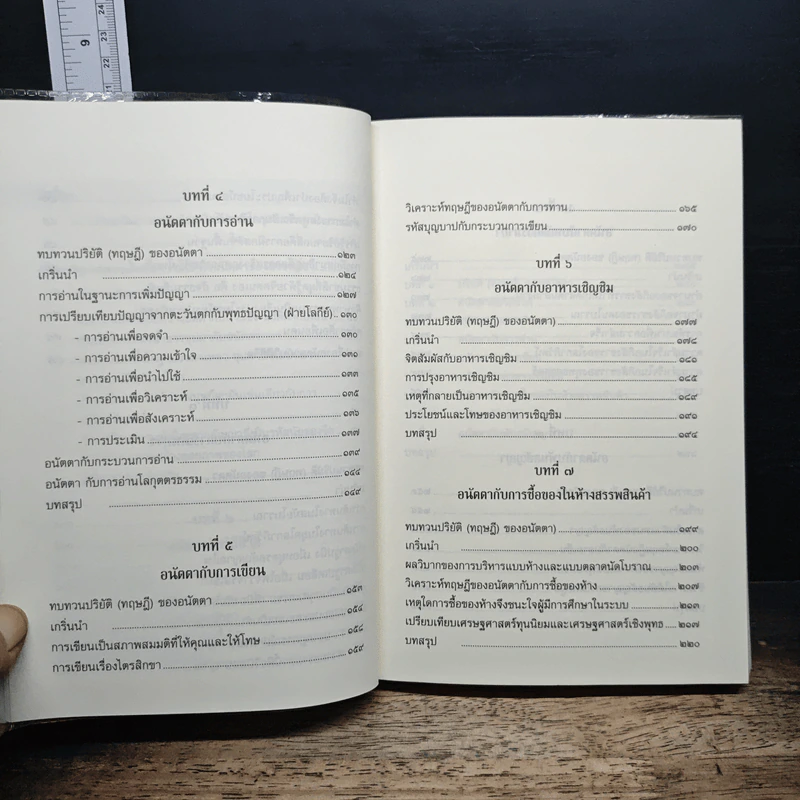 9
24
23
22
21
บทที่ ๔
อนัตตากับการอ่าน
ทบทวนปริยัติ (ทฤษฎี) ของอนัตตา ๑๒๓
เกริ่นนำ ๑๒๔
การอ่านในฐานะการเพิ่มปัญญา ๑๒๗
การเปรียบเทียบปัญญาจากตะวันตกกับพุทธปัญญา (ฝ่ายโลกีย์) ๑๓๐
- การอ่านเพื่อจดจำ ๑๓๐
- การอ่านเพื่อความเข้าใจ ๑๓๑
- การอ่านเพื่อนำไปใช้ ๑๓๓
- การอ่านเพื่อวิเคราะห์ ๑๓๕
- การอ่านเพื่อสังเคราะห์ ๑๓๖
- การประเมิน ๑๓๗
อนัตตากับกระบวนการอ่าน ๑๓๙
อนัตตา กับการอ่านโลกุตตรธรรม ๑๔๔
บทสรุป ๑๔๙
บทที่ ๕
อนัตตากับการเขียน
ทบทวนปริยัติ (ทฤษฎี) ของอนัตตา ๑๕๓
เกริ่นนำ ๑๕๔
การเขียนเป็นสภาพสมมติที่ให้คุณและให้โทษ ๑๕๘
การเขียนเรื่องไตรสิกขา ๑๕๙
วิเคราะห์ทฤษฎีของอนัตตากับการทาน ๑๖๕
รหัสบุญบาปกับกระบวนการเขียน ๑๗๐
บทที่ ๖
อนัตตากับอาหารเชิญชิม
ทบทวนปริยัติ (ทฤษฎี) ของอนัตตา) ๑๗๗
เกริ่นนำ ๑๗๘
จิตสัมผัสกับอาหารเชิญชิม ๑๘๑
การปรุงอาหารเชิญชิม ๑๘๕
เหตุที่กลายเป็นอาหารเชิญชิม ๑๘๙
ประโยชน์และโทษของอาหารเชิญชิม ๑๙๑
บทสรุป ๑๙๔
บทที่ ๗
อนัตตากับการซื้อของในห้างสรรพสินค้า
ทบทวนปริยัติ (ทฤษฎี) ของอนัตตา) ๑๙๙
เกริ่นนำ ๒๐๐
ผลวิบากของการบริหารแบบห้างและแบบตลาดนัดโบราณ ๒๐๓
วิเคราะห์ทฤษฎีของอนัตตากับการซื้อของห้าง ๒๐๗
เหตุใดการซื้อของห้างจึงชนะใจผู้มีการศึกษาในระบบ ๒๑๓
เปรียบเทียบเศรษฐศาสตร์ทุนนิยมและเศรษฐศาสตร์เชิงพุทธ ๒๑๗
บทสรุป ๒๒๐